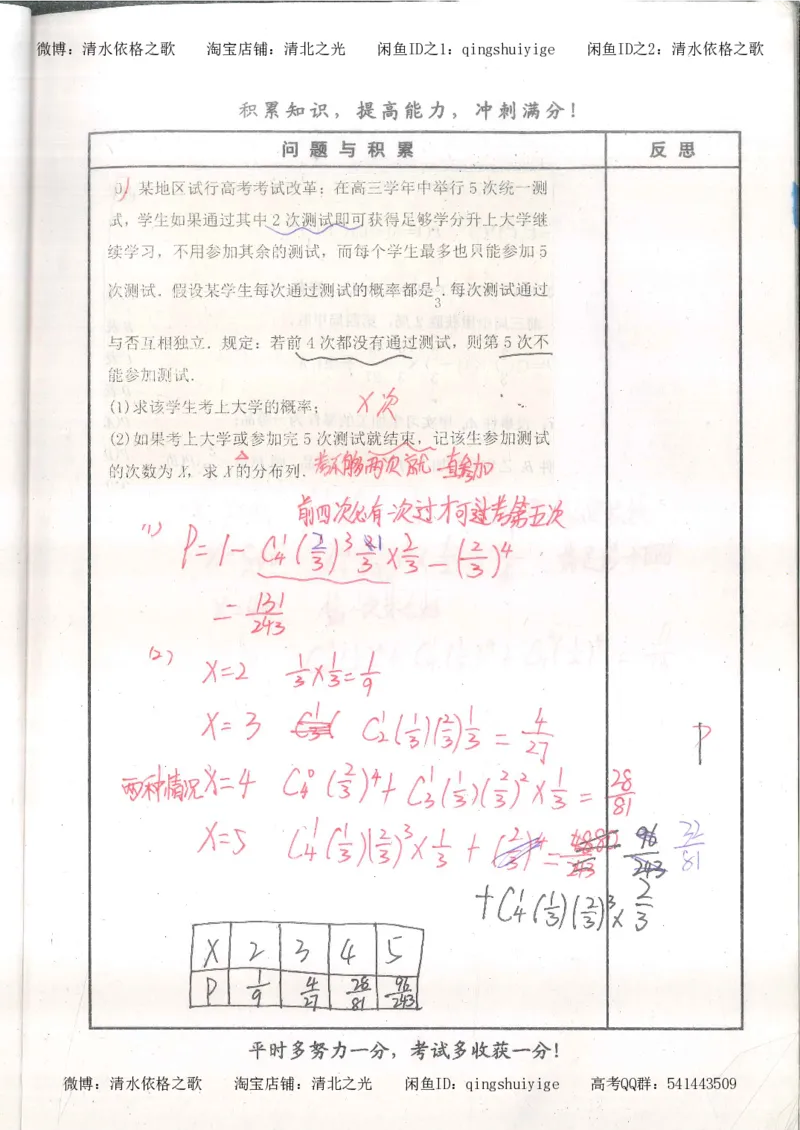 微博：清水依格之歌 淘宝店铺：清北之光 闲鱼ID之1：qingshuiyige 闲鱼ID之2：清水依格之歌
积累知识，提高能力，冲刺满分！
问题与积累 反思
某地区试行高考考试改革：在高三学年中举行5次统一测
试，学生如果通过其中2次测试即可获得足够学分升上大学继
续学习，不用参加其余的测试，而每个学生最多也只能参加5
次测试．假设某学生每次通过测试的概率都是1/3．每次测试通过
与否互相独立．规定：若前4次都没有通过测试，则第5次不
能参加测试．
(1)求该学生考上大学的概率；
X次
(2)如果考上大学或参加完5次测试就结束，记该生参加测试
的次数为X，求X的分布列．
考不够两次就一直参加
前四次必有一次过才可进考第五次
(1) P=1-C₄¹(2/3)³ 1/3×2/3-(2/3)⁴
=131/243
(2) X=2 1/3×1/3=1/9
X=3 C₂¹(1/3)(2/3)1/3=4/27
两种情况 X=4 C₄⁰(2/3)⁴+C₃¹(1/3)(2/3)²×1/3=28/81
X=5 C₄¹(1/3)(2/3)³×1/3+(2/3)⁴= 96/243 22/81
+C₄¹(1/3)(2/3)³×2/3
P
X 2 3 4 5
P 1/9 4/27 28/81 96/243
平时多努力一分，考试多收获一分！
微博：清水依格之歌 淘宝店铺：清北之光 闲鱼ID：qingshuiyige 高考QQ群：541443509